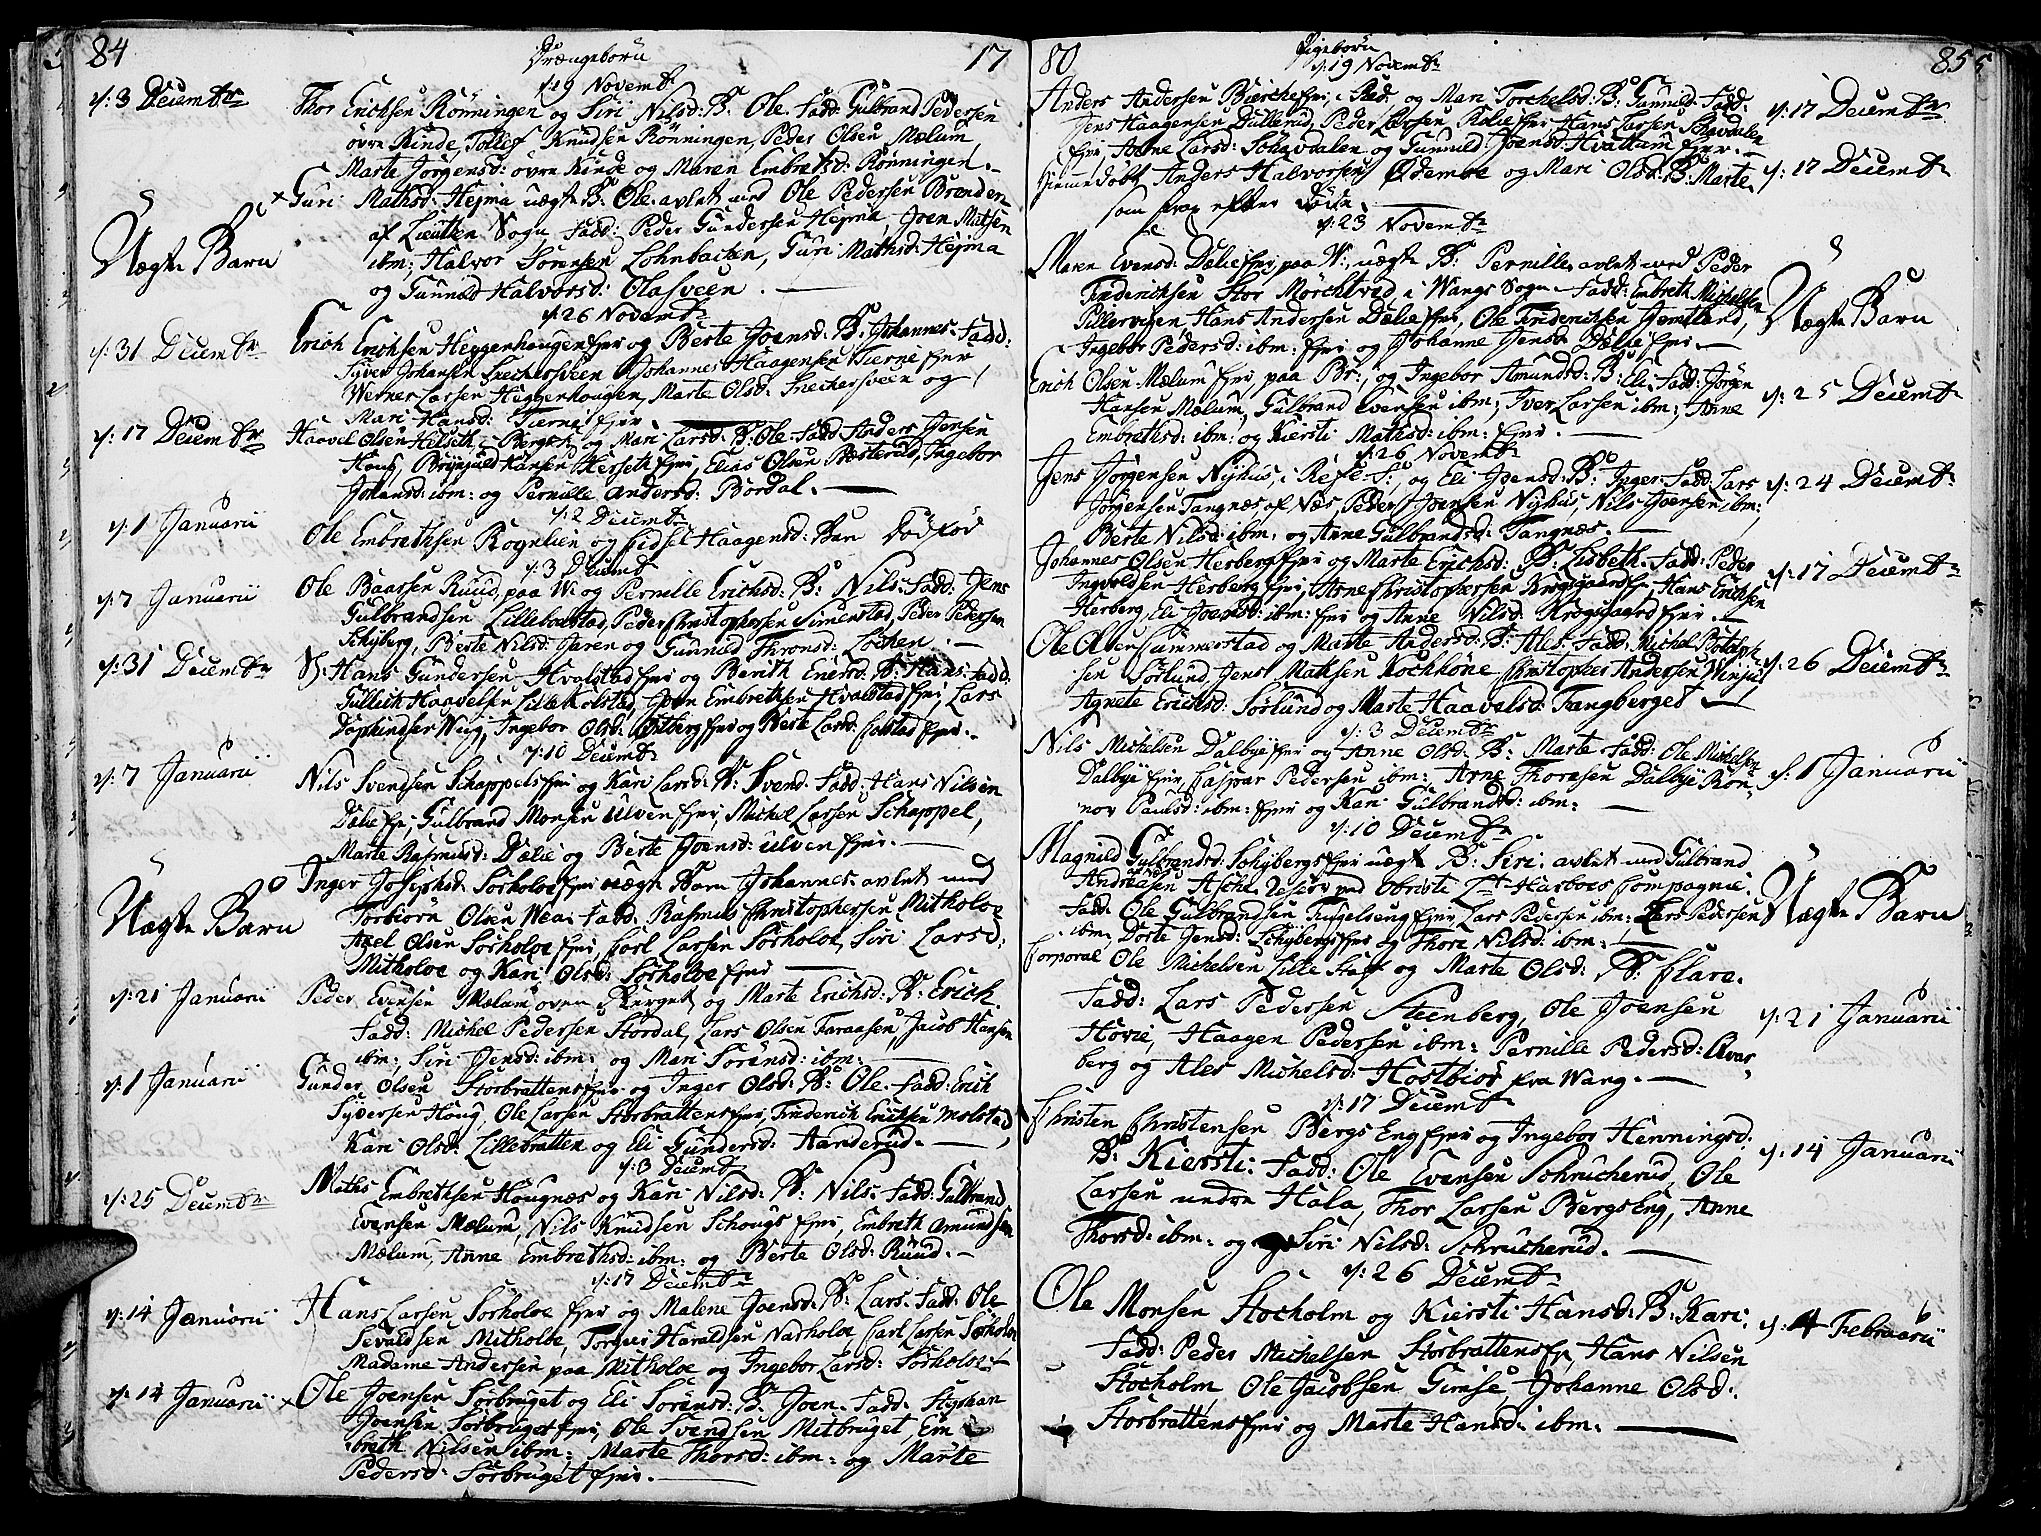 84 Drængebørn 17
d: 19 Novembr
d: 3 Decembr Thor Erichsen Rönningen og Siri Nilsd: B: Ole. Fadd: Gulbrand Pedersen
övre Kinde, Tollef Knudsen Rönningen, Peder Olsen Mælum,
Marte Jörgensd: övre Kinde og Maren Embretsd: Rönningen.
Guri Mathsd: Hejma uægte B: Ole. avlet med Ole Pedersen Brenden
af Leutten Sogn Fadd: Peder Gundersen Hejma, Joen Matsen
Uægte Barn ibm; Halvor Sörensen Lohnbacken, Guri Mathsd: Hejma
og Gunnild Halvorsd: Olasveen.
d: 26 Novembr
d: 31 Decembr Erich Erichsen Heggenhougen Ejer og Berte Joensd: B: Johannes. Fadd:
Syver Johansen Freckersveen Johannes Haagensen Tierne Ejer
Werner Larsen Heggenhougen, Marte Olsd: Freckersveen og
Mari Hansd: Tierne Ejer.
d: 17 Decembr Haavel Olsen Hilseth, i Bergs S: og Mari Larsd: B: Ole. Fadd: Anders Jensen
Houf, Brynjuld Hansen Herseth Ejer, Elias Olsen Basterud, Ingebor
Johansd: ibm: og Pernille Andersd: Bordal.
d: 2 Decembr
d: 1 Januarii Ole Embrethsen Rognlien og Lidsel Haagensd: Barn Dödfød
d: 3 Decembr
d: 7 Januarii Ole Baarsen Ruud, paa W: og Pernille Erichsd: B: Nils. Fadd: Jens
Gulbrandsen Lillebolstad, Peder Christophersen Simenstad, Peder Pedersen
Schyberg, Berte Nilsd: Jaren og Gunnild Thronsd: Löcken.
d: 31 Decembr S: Hans Gundersen Hvalstad Ejer og Berith Enersd: B: Hans. Fadd:
Gullich Haavelsen Lille Kolstad, Joen Embrethsen Hvalstad Ejer, Lars
Wiig, Ingebor Olsd: Ejer og Berte Larsd: Colstad Ejer.
d: 10 Decembr
d: 7 Januarii Nils Svendsen Schappels Ejer og Kari Larsd: B: Svend. Fadd: Hans Nilsen
Dælie Ejer, Gulbrand Monsen Ulven Ejer, Michel Larsen Schappel,
Marte Rasmusd: Dælie og Berte Joensd: Ulven Ejer.
Inger Josephsd: Sörholve Ejer uægte Barn Johannes. avlet med
Torbiörn Olsen Wea. Fadd: Rasmus Christophersen Mitholve
Uægte Barn Axel Olsen Sörholve Ejer, Carl Larsen Sörholve, Siri Larsd:
Mitholve og Kari Olsd: Sörholve Ejer
d: 21 Januarii Peder Evensen Mælum oven Skierget og Marte Erichsd: B: Erick.
Fadd: Michel Pedersen Stordal, Lars Olsen Faraasen, Jacob Hansen
ibm; Siri Jensd: ibm: og Mari Sörensd: ibm:
d: 1 Januarii Gunder Olsen Storbrattens Ejer og Inger Olsd: B: Ole. Fadd: Erich
Syversen Houg, Ole Larsen Storbrattens Ejer, Frederich Erichsen Molstad,
Kari Olsd: Lillebratten og Eli Gundersd: Aanderud.
d: 3 Decembr
d: 25 Decembr Maths Embrethsen Hougnæs og Kari Nilsd: B: Nils. Fadd: Gulbrand
Evensen Mælum, Nils Knudsen Schougs Ejer, Embreth Amundsen
Mælum, Anne Embrethsd: ibm: og Berte Olsd: Ruud.
d: 17 Decembr
d: 14 Januarii Hans Larsen Sörholve Ejer og Malene Joensd: B: Lars. Fadd: Ole
Sevaldsen Mitholve, Torger Haraldsen Nadholve Carl Larsen Sörholve
Madame Andersen paa Mitholve og Ingebor Larsd: Sörholve.
d: 14 Januarii Ole Joensen Sörbruget og Eli Sörensd: B: Joen. Fadd: Stephan
Joensen Sörbruget Ejer, Ole Svendsen Mitbruget, Em
breth Nilsen ibm: Marte Thorsd: ibm: og Marte
Pedersd: Sörbruget Ejer.
80 Pigebørn 85
d: 19 Novembr
Anders Andersen Bierche Ejer, i Rød. og Mari Torchelsd: B: Gunnild. Fadd: d: 17 Decembr
Jens Haagensen Dullerud, Peder Larsen Rolie Ejer Hans Larsen Schavdalen
Ejer, Anne Larsd: Schavdalen og Gunnild Joensd: Hvattum Ejer.
Hiemmedöbt Anders Halvorsen Ödemoe og Mari Olsd: B: Marte. d: 17 Decembr
som strax efter döde.
d: 23 Novembr
Maren Evensd: Dælie Ejer, paa W: uægte B: Pernille. avlet med Peder
Friderichsen Stor Mörchved i Wangs Sogn. Fadd: Embreth Michelsen
Pillervigen Hans Andersen Dælie Ejer, Ole Friderichsen Hemtland, Uægte Barn
Ingebor Pedersd: ibm: Ejer og Johanne Jensd: Dælie Ejer.
Erich Olsen Mælum Ejer, paa Br:, og Ingebor Amundsd: B: Eli. Fadd: Jörgen d: 25 Decembr
Hansen Mælum, Gulbrand Evensen ibm; Iver Larsen ibm; Anne
Embrethsd: ibm; og Kiersti Mathsd: ibm: Ejer.
d: 26 Novembr
Jens Jörgensen Nyhus, i Refl. S:, og Eli Joensd: B: Inger. Fadd: Lars d: 24 Decembr
Jörgensen Tangnæs af Næs, Peder Joensen Nyhus, Nils Joensen ibm;
Berte Nilsd: ibm, og Anne Gulbrandsd: Tangnæs.
Johannes Olsen Herberg Ejer og Marte Erichsd: B: Lisbeth. Fadd: Peder d: 17 Decembr
Ingvoldsen Herberg Ejer, Arne Christophersen Krogsgaard Ejer Hans Erichsen
Herberg, Eli Joensd: ibm: Ejer og Anne Nilsd: Krogsgaard Ejer.
Ole Olsen Lummerstad og Marte Andersd: B: Ales. Fadd: Michel Botolph d: 26 Decembr
sen Sörlund, Jens Mathsen Kochhöne Christopher Andersen Winjui
Agnete Erichsd: Sörlund og Marte Haavelsd: Tangberget
d: 3 Decembr
Nils Michelsen Dalbye Ejer og Anne Olsd: B: Marte. Fadd: Ole Michelsen d: 1 Januarii
Dalbye Ejer, Caspar Pedersen ibm: Arne Thoresen Dalbye Ron
nov Paulsd: ibm: Ejer og Kari Gulbrandsd: ibm:
d: 10 Decembr
Magnild Gulbrandsd: Schybergs Ejer uægte B: Siri. avlet med Gulbrand
Andreasen Aschr. Reserve ved Obriste Lt Harboes Compagnie.
Fadd: Ole Gulbrandsen Trugelseng Ejer, Lars Pedersen ibm; Lars Pedersen Uægte Barn
ibm, Dorte Jensd: Schybergs Ejer og Thore Nilsd: ibm:
Corporal Ole Michelsen Lille Staff og Marte Olsd: B: Clare.
Fadd: Lars Pedersen Steenberg, Ole Joensen d: 21 Januarii
Hovie, Haagen Pedersen ibm: Pernille Pedersd: Qvar
berg og Ales Michelsd: Hostbiör fra Wang.
d: 17 Decembr
Christen Christensen Bergs Eng Ejer og Ingebor Henningsd:
B: Kiersti. Fadd: Ole Evensen Schrucherud, Ole d: 14 Januarii
Larsen undre Hala, Thor Larsen Bergs Eng, Anne
Thorsd: ibm: og Siri Nilsd: Schrucherud.
d: 26 Decembr
Ole Monsen Stocholm og Kiersti Hansd: B: Kari.
Fadd: Peder Michelsen Storbrattens Ejer, Hans Nilsen d: 4 Februarii
Stocholm Ole Jacobsen Gimse, Johanne Olsd:
Storbrattens Ejer og Marte Hansd: ibm: